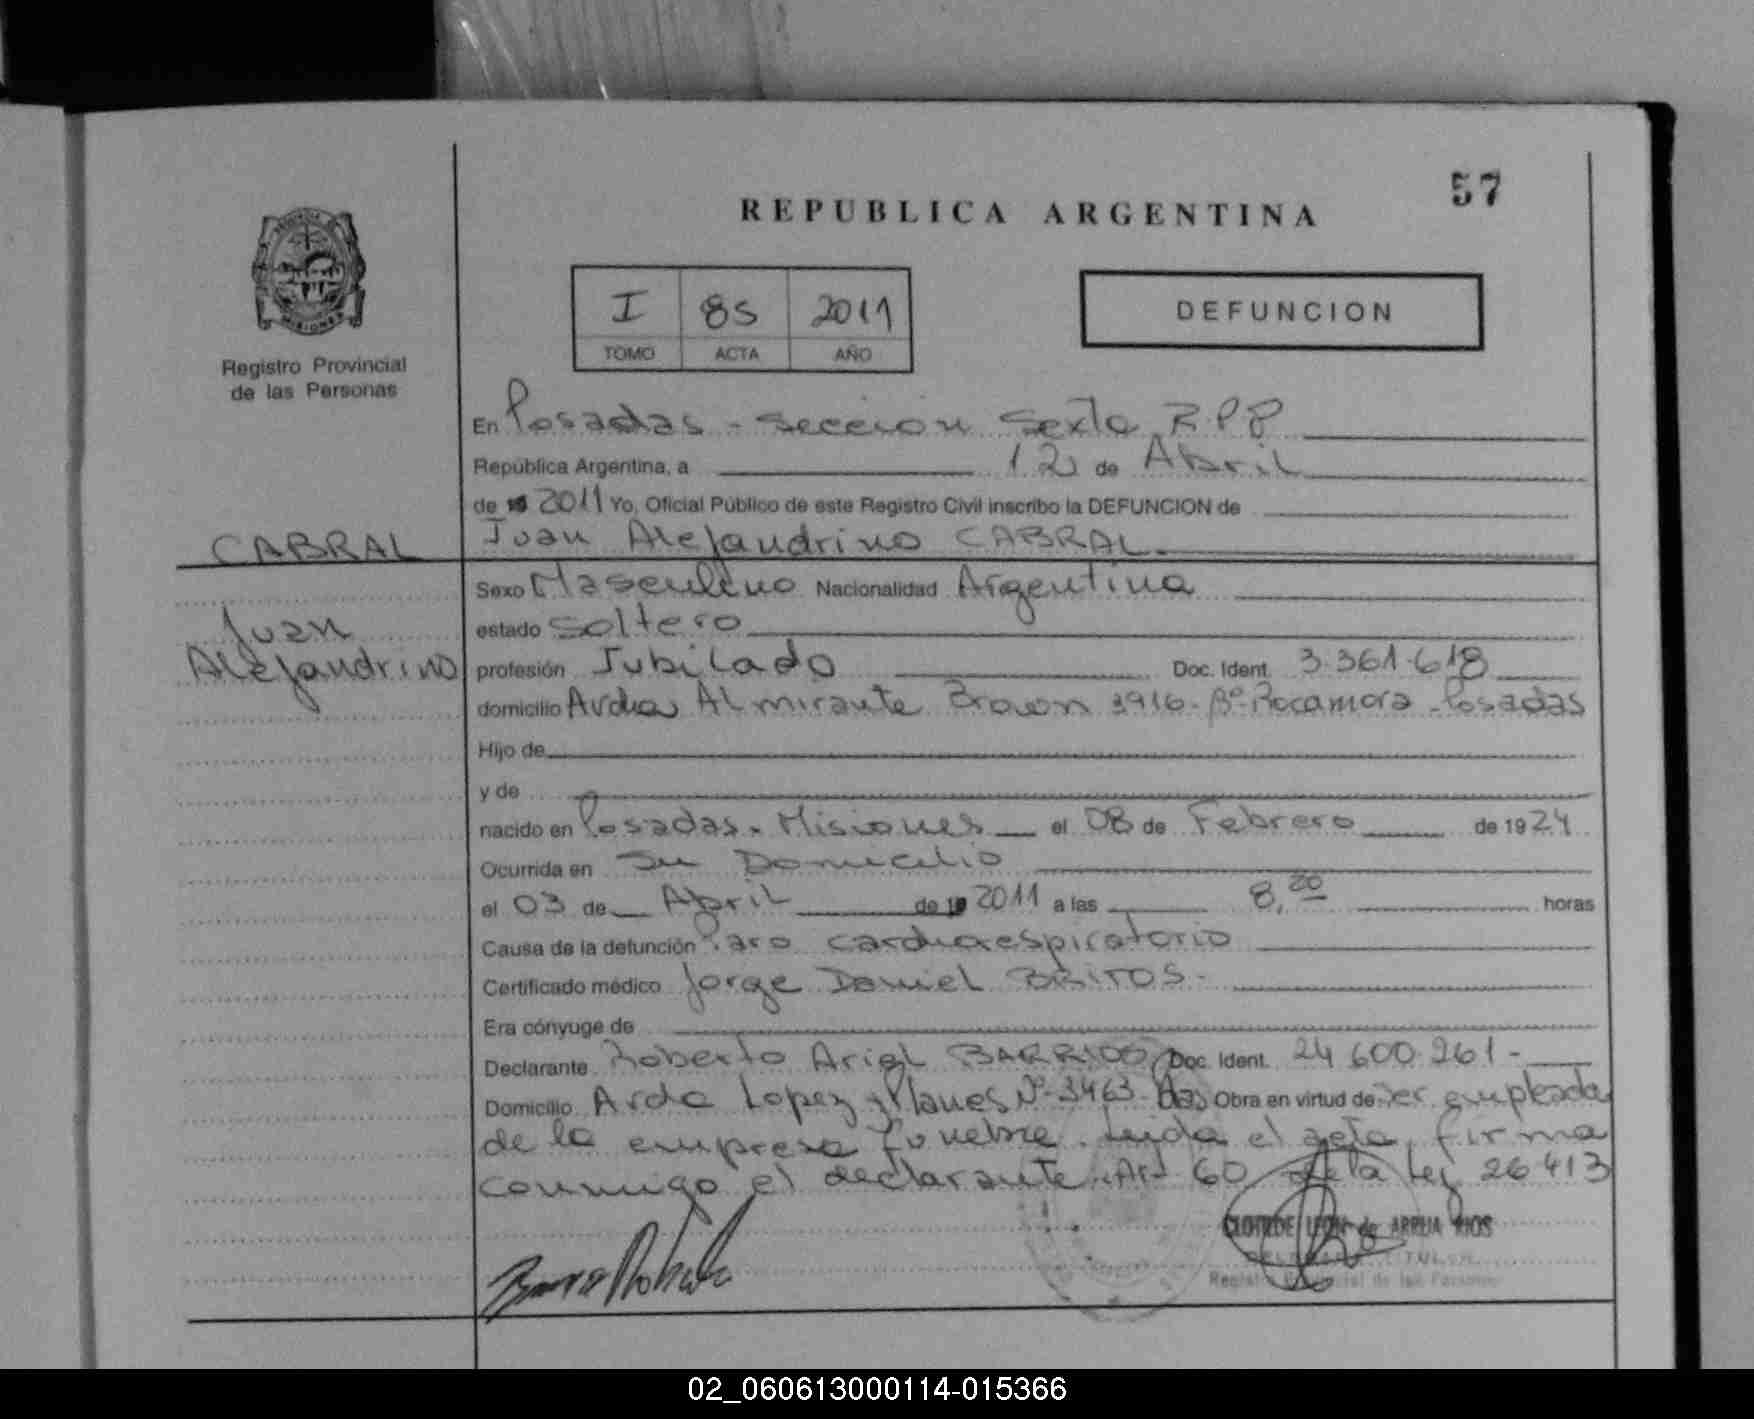 57
REPUBLICA ARGENTINA
I 85 2011
TOMO ACTA AÑO
DEFUNCION
MISIONES
Registro Provincial
de las Personas
En Posadas - Seccion Sexta RPP
República Argentina, a 12 de Abril
de 2011 Yo, Oficial Público de este Registro Civil inscribo la DEFUNCION de
Juan Alejandrino CABRAL
CABRAL
Juan
Alejandrino
Sexo Masculino Nacionalidad Argentina
estado Soltero
profesión Jubilado Doc. Ident. 3.361.618
domicilio Avda Almirante Brown 3916 - Bº Rocamora - Posadas
Hijo de
y de
nacido en Posadas - Misiones el 08 de Febrero de 1924
Ocurrida en Su Domicilio
el 03 de Abril de 2011 a las 8,20 horas
Causa de la defunción Paro cardiorespiratorio
Certificado médico Jorge Daniel BRITOS -
Era cónyuge de
Declarante Roberto Ariel BARRIOS Doc. Ident. 24.600.261 -
Domicilio Avda Lopez y Planes Nº 3463 - Pdas Obra en virtud de ser empleado
de la empresa funebre. Leida el acta, firma
conmigo el declarante. Art 60 de la Ley 26413
CLOTILDE LEON de ARRUA RIOS
Registro Provincial de las Personas
02_060613000114-015366